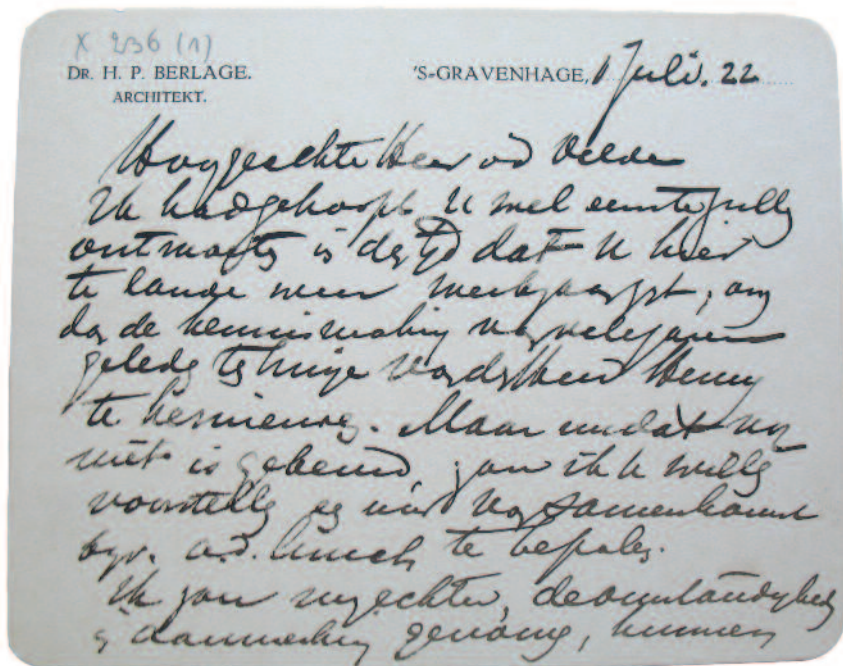 X 236 (1)
DR. H. P. BERLAGE. 'S-GRAVENHAGE, 1 Juli. 22
ARCHITEKT.
Hooggeachte Heer vd Velde
Ik had gehoopt U wel eens te zullen
ontmoeten in den tijd dat U hier
te lande weer werkzaam zijt, om
dan de kennismaking van vele jaren
geleden ten huize van den Heer Henny
te hernieuwen. Maar omdat nog
niet is gebeurd, zou ik U willen
voorstellen een uur van samenkomst
bijv. a.d. lunch te bepalen.
Ik zou mij echter, de omstandigheden
in aanmerking genomen, kunnen